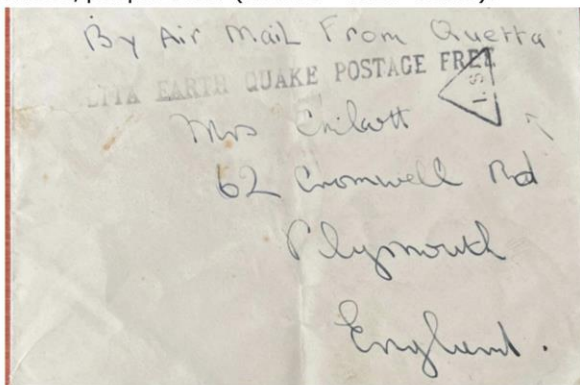 By Air Mail From Quetta
EARTH QUAKE POSTAGE FREE
Mrs
62 Cromwell Rd
Plymouth
England.